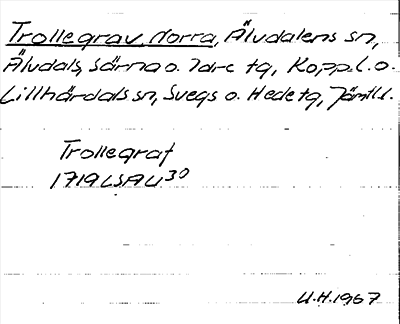 Trollegrav, Norra, Älvdalens sn,
Älvdals, Särna o. Idre tg, Kopp.l. o.
Lillhärdals sn, Svegs o. Hede tg, Jämtl.l.
Trollegraf
1719 LSA U30
U.H. 1967